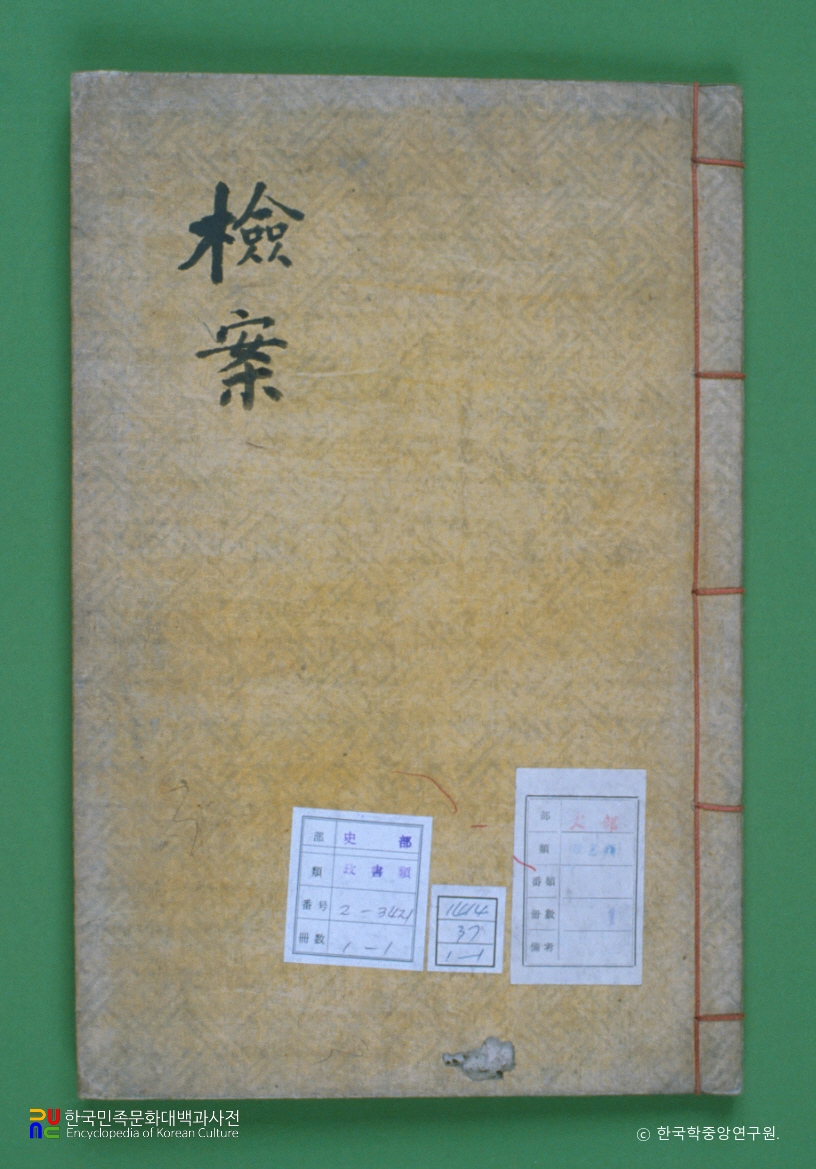 檢
案
部 史部
類 政書類
番号 2-3421
冊数 1-1
1414
37
1-1
部 史部
類
番類
冊数
備考
한국민족문화대백과사전
Encyclopedia of Korean Culture
© 한국학중앙연구원.